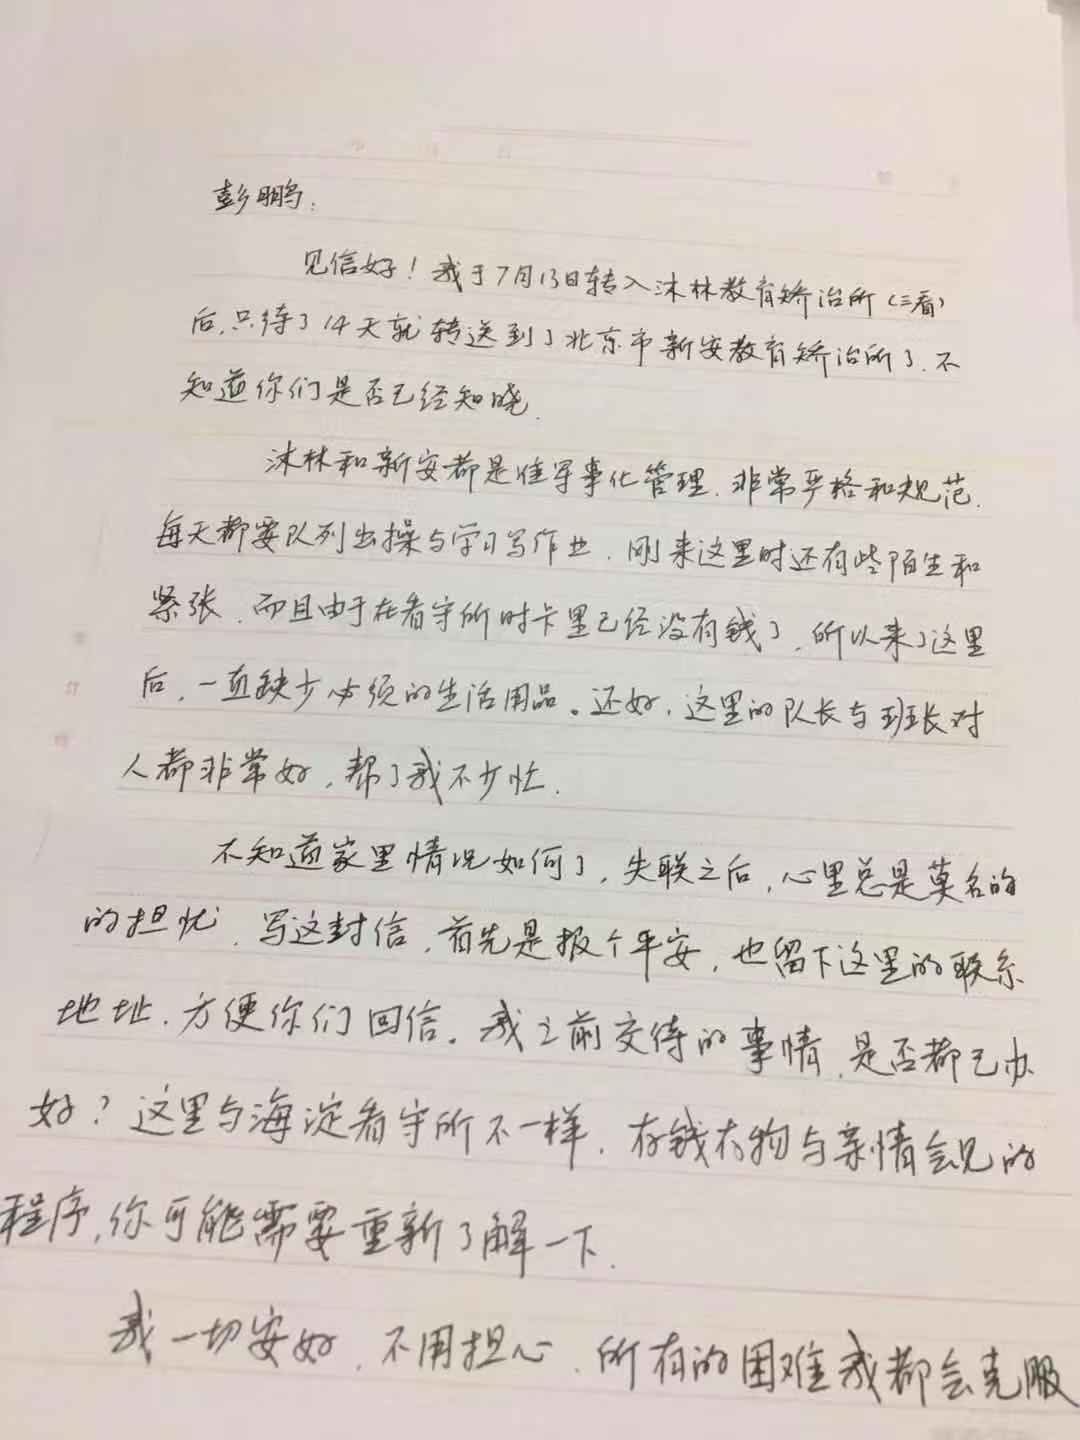 彭鹏：
见信好！我于7月13日转入沐林教育矫治所（三看）
后，只待了14天就转送到了北京市新安教育矫治所了，不
知道你们是否已经知晓．
沐林和新安都是准军事化管理，非常严格和规范．
每天都要队列出操与学习写作业，刚来这里时还有些陌生和
紧张，而且由于在看守所时卡里已经没有钱了，所以来了这里
后，一直缺少必须的生活用品。还好，这里的队长与班长对
人都非常好，帮了我不少忙．
不知道家里情况如何了，失联之后，心里总是莫名的
的担忧，写这封信，首先是报个平安，也留下这里的联系
地址，方便你们回信。我之前交待的事情，是否都已办
好？这里与海淀看守所不一样，存钱存物与亲情会见的
程序，你可能需要重新了解一下．
我一切安好，不用担心，所有的困难我都会克服